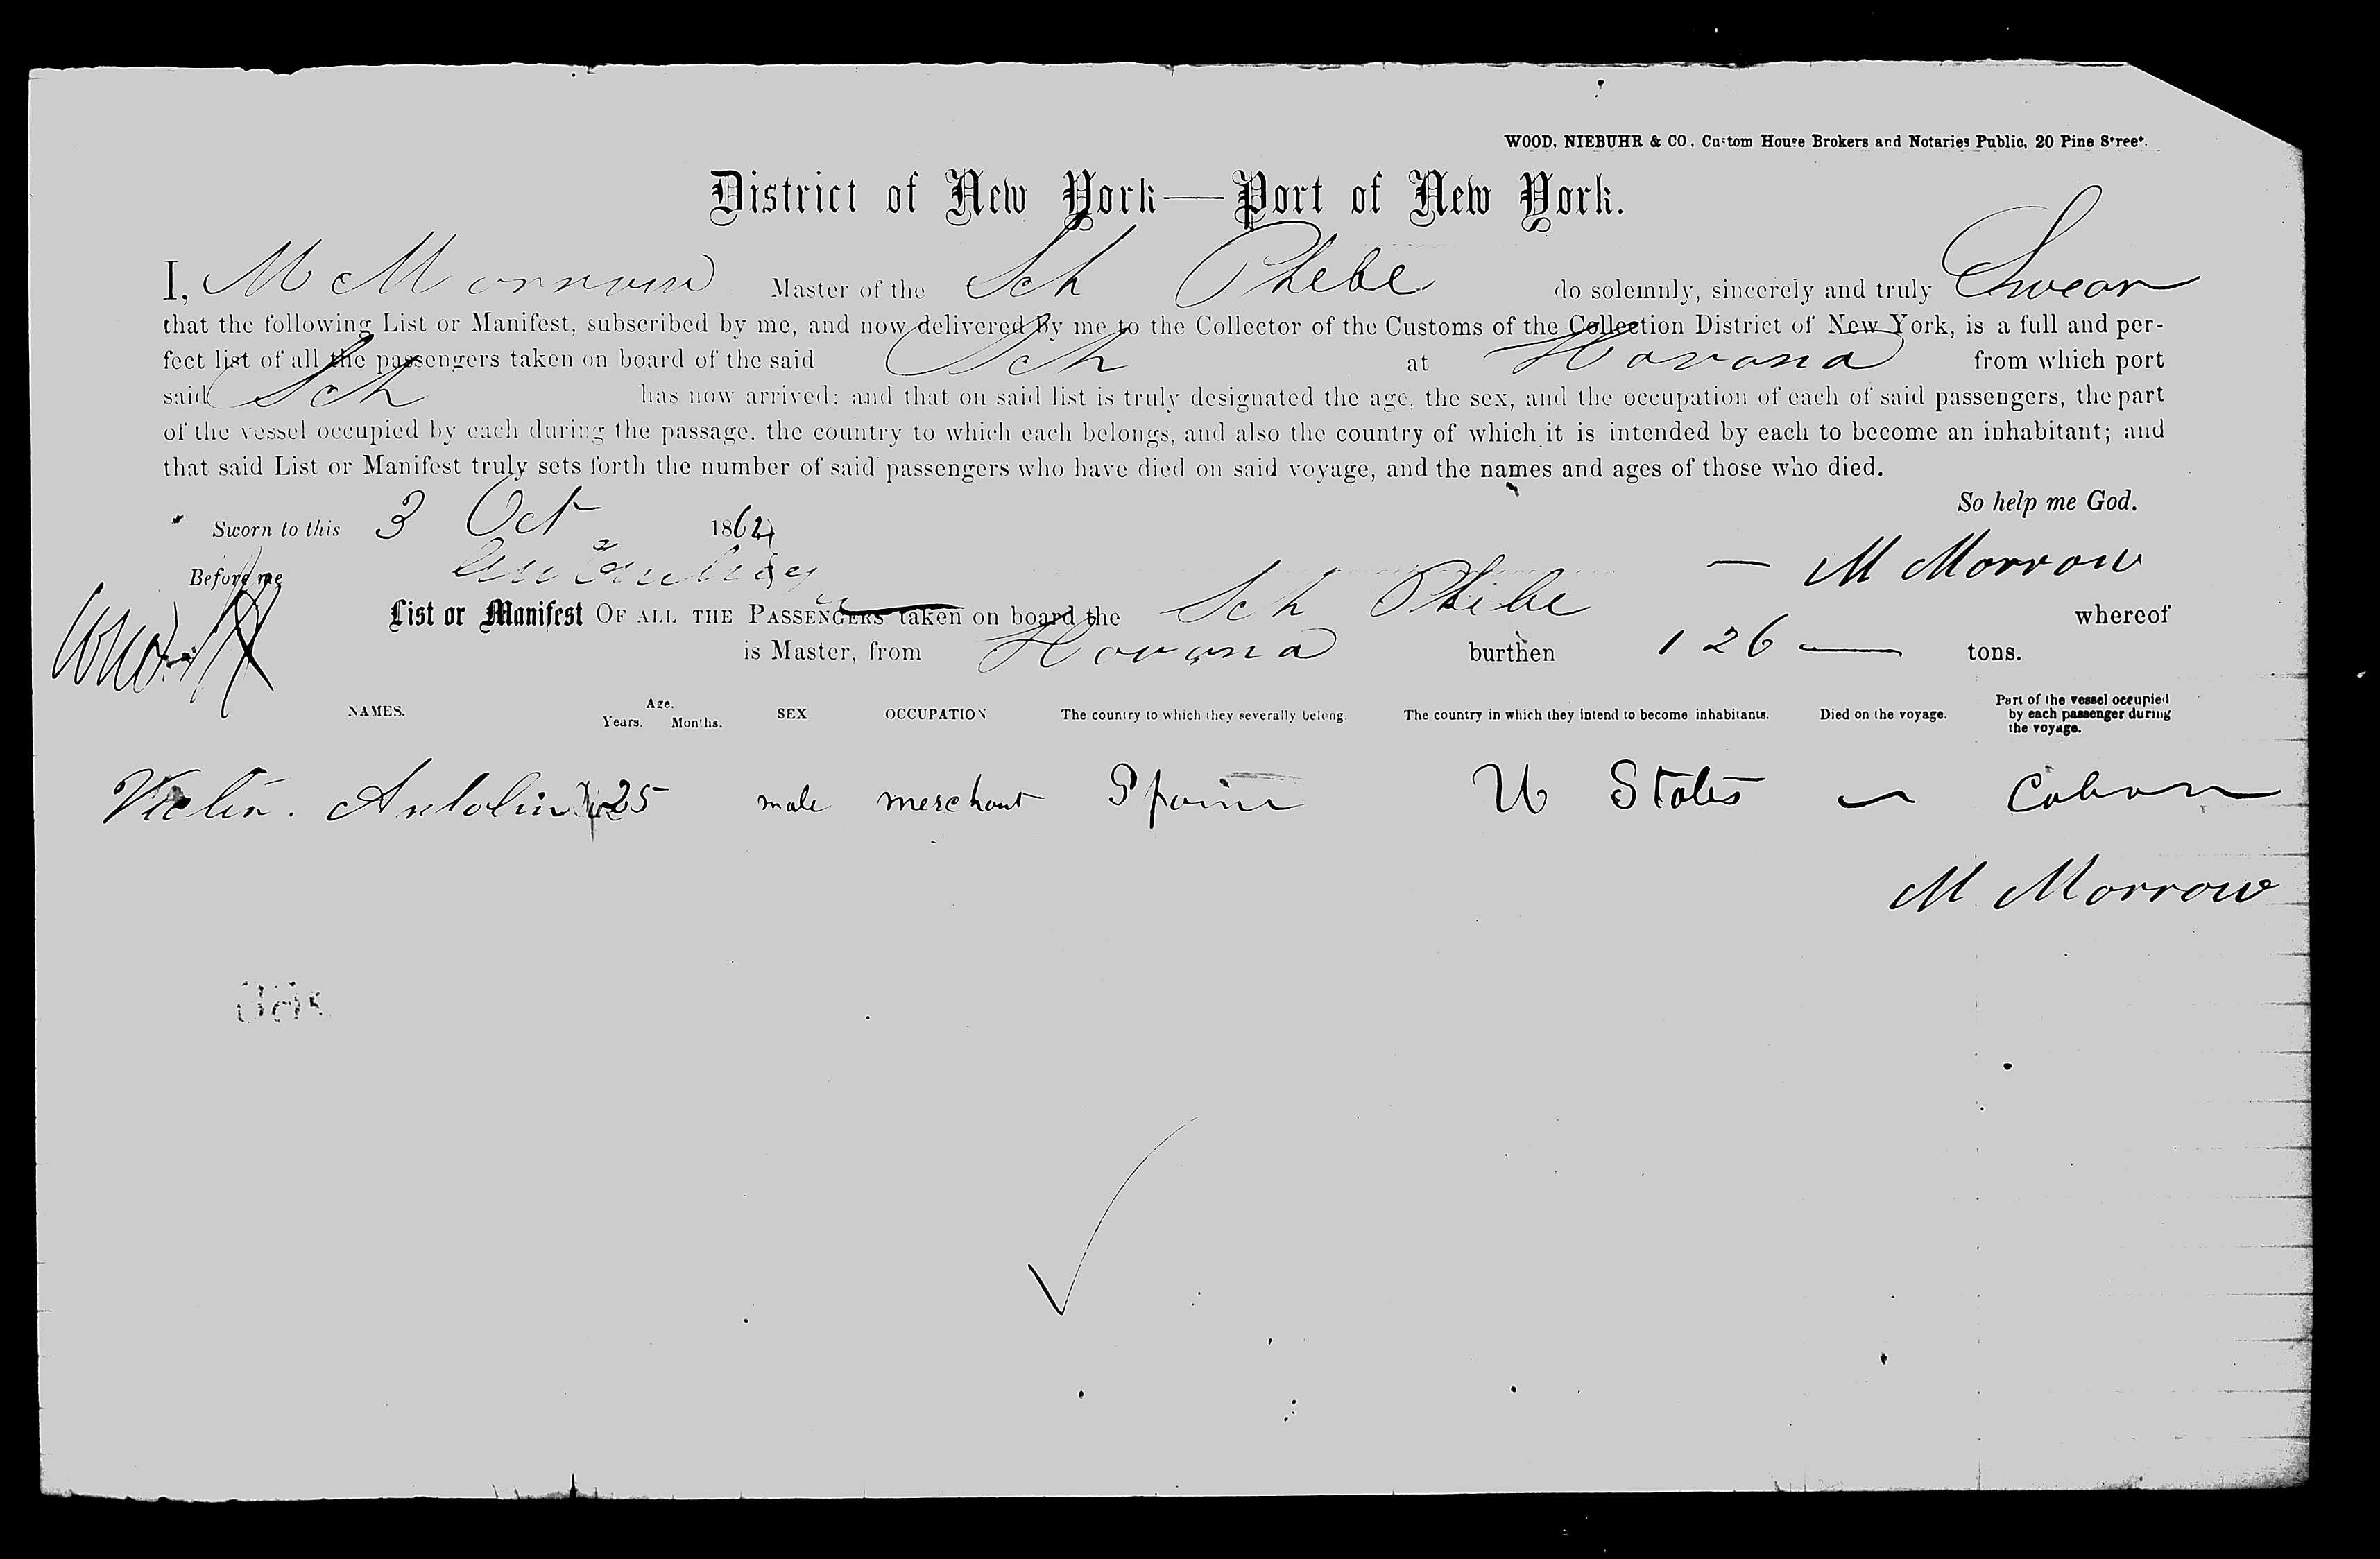 WOOD, NIEBUHR & CO., Custom House Brokers and Notaries Public, 20 Pine Street.
District of New York—Port of New York.
I, M McMorrow Master of the Sch Phebe do solemnly, sincerely and truly Swear
that the following List or Manifest, subscribed by me, and now delivered by me to the Collector of the Customs of the Collection District of New York, is a full and per-
fect list of all the passengers taken on board of the said Sch at Havana from which port
said Sch has now arrived; and that on said list is truly designated the age, the sex, and the occupation of each of said passengers, the part
of the vessel occupied by each during the passage, the country to which each belongs, and also the country of which it is intended by each to become an inhabitant; and
that said List or Manifest truly sets forth the number of said passengers who have died on said voyage, and the names and ages of those who died.
So help me God.
Sworn to this 3 Oct 1864
Before me M Morrow
List or Manifest OF ALL THE PASSENGERS taken on board the Sch Phebe whereof
is Master, from Havana burthen 126 tons.
NAMES. Age. Years. Months. SEX OCCUPATION The country to which they severally belong. The country in which they intend to become inhabitants. Died on the voyage. Part of the vessel occupied by each passenger during the voyage.
Antolin 25 male merchant Spain U States — Cabin
M Morrow